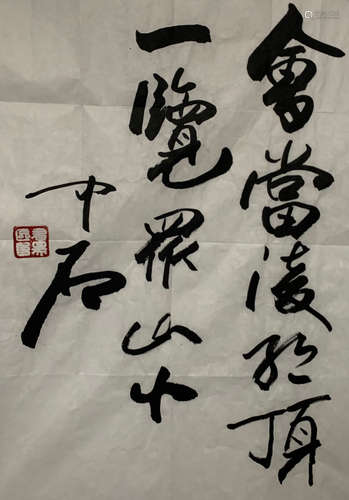 會當淩絕頂
一覽眾山小
中石